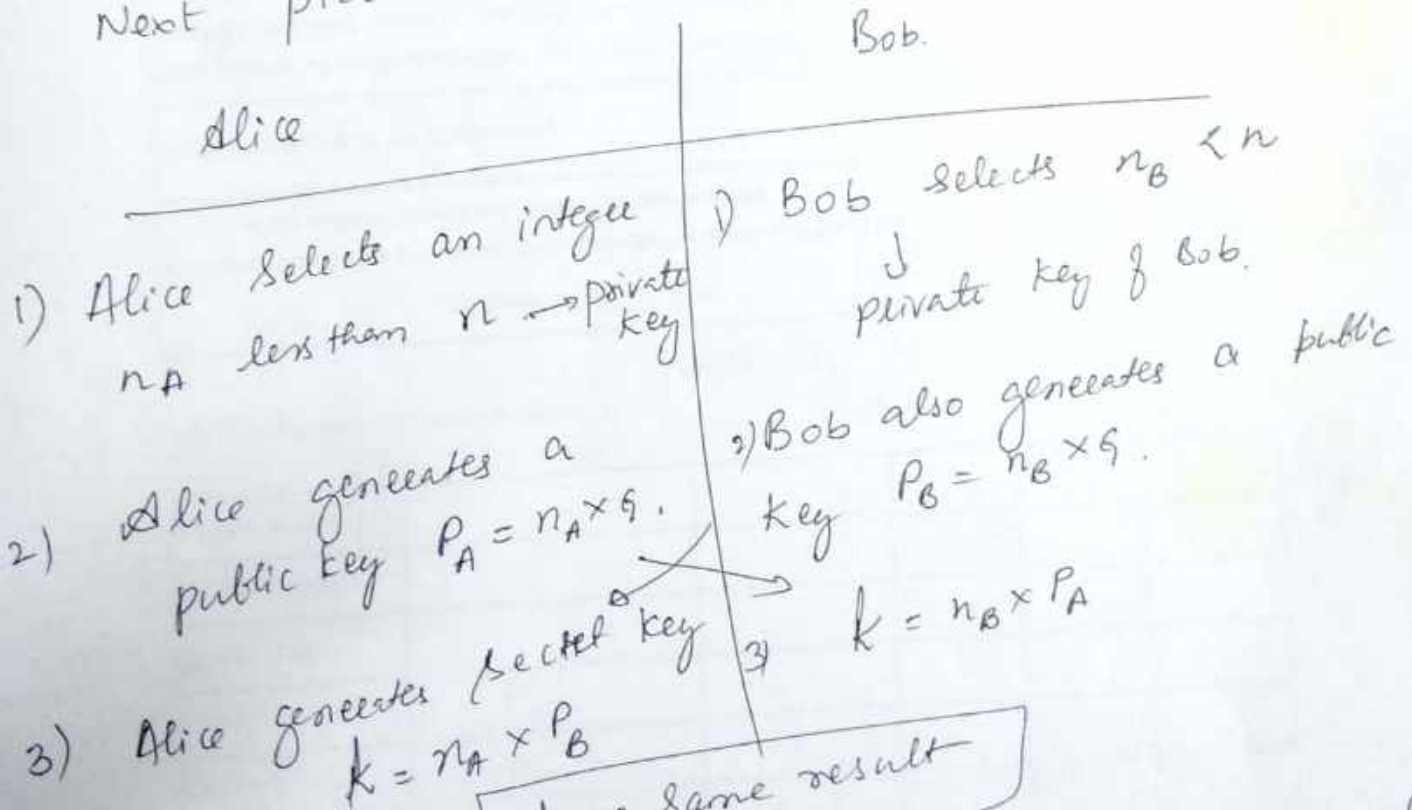 Next
Alice
1) Alice selects an integer
n_A less than n → private
key
2) Alice generates a
public key P_A = n_A × G.
3) Alice generates secret key
k = n_A × P_B
Bob.
1) Bob selects n_B < n
↓
private key of Bob.
2) Bob also generates a public
key P_B = n_B × G.
3) k = n_B × P_A
same result